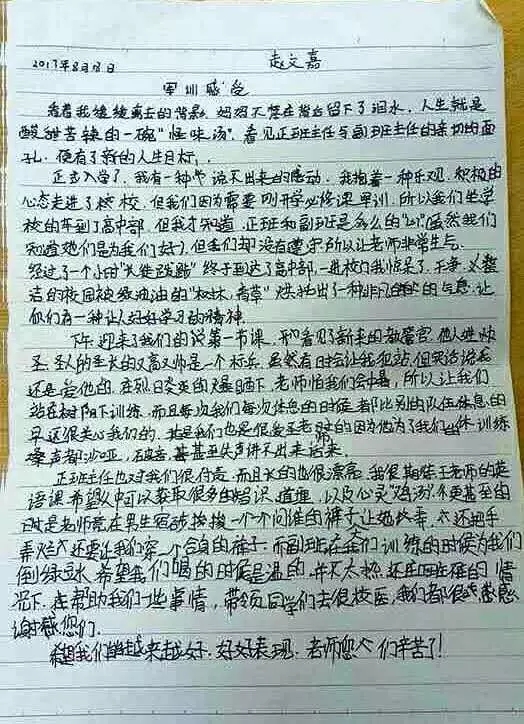 2017年8月18日 赵文嘉
军训感受
看着我缓缓离去的背影,妈妈不禁在背后留下了泪水,人生就是
酸甜苦辣的一碗"怪味汤",看见正班主任与副班主任的亲切的面
孔,便有了新的人生目标,
正式入学了,我有一种说不出来的感动,我抱着一种乐观、积极的
心态走进了校校,但我们因为需要刚开学必修课军训,所以我们坐学
校的车到了高中部,但我才知道,正班和副班是多么的"凶"(虽然我们
知道她们是为我们好),但我们却没有遵守所以让老师非常生气,
经过了一个小时"长途跋涉"终于到达了高中部,一进校门我惊呆了,干净、又整
洁的校园被绿油油的"树林,青草"烘托出了一种非凡的气息,让
他们有一种让人好好学习的精神。
下午,迎来了我们的说第一节课,我看见了新来的教官,他人进
圣,圣人的生长的又高又帅是一个标兵,虽然有时会让我犯站,但笑话
还是爱他的,在烈日炎炎的大爆晒下,老师怕我们会中暑,所以让我们
站在树阴下训练,而且每次我们每次休息的时候都比别的队伍休息的
早,还很关心我们的,其是我们也是很爱王老师的因为他为了我们训练
嗓声都沙哑,破音,甚至失声讲不出来话来。
正班主任也对我们很付责,而且长的也很漂亮,我很期待王老师的英
语课,希望从中可以获取很多的知识,道理,以及心灵"鸡汤",更甚至的
时是老师竟在男生宿舍挨挨一个个问谁的裤子大让她改,还把手
弄烂还要让我们穿一个合身的裤子,而副班在我们训练的时候为我们
倒绿豆水,希望我们喝的时候是温的,并不太热,还在
况下,在帮助我们一些事情,带领同学们去很校医,我们都很感
谢您们.
我们越来越好,好好表现,老师您们辛苦了!